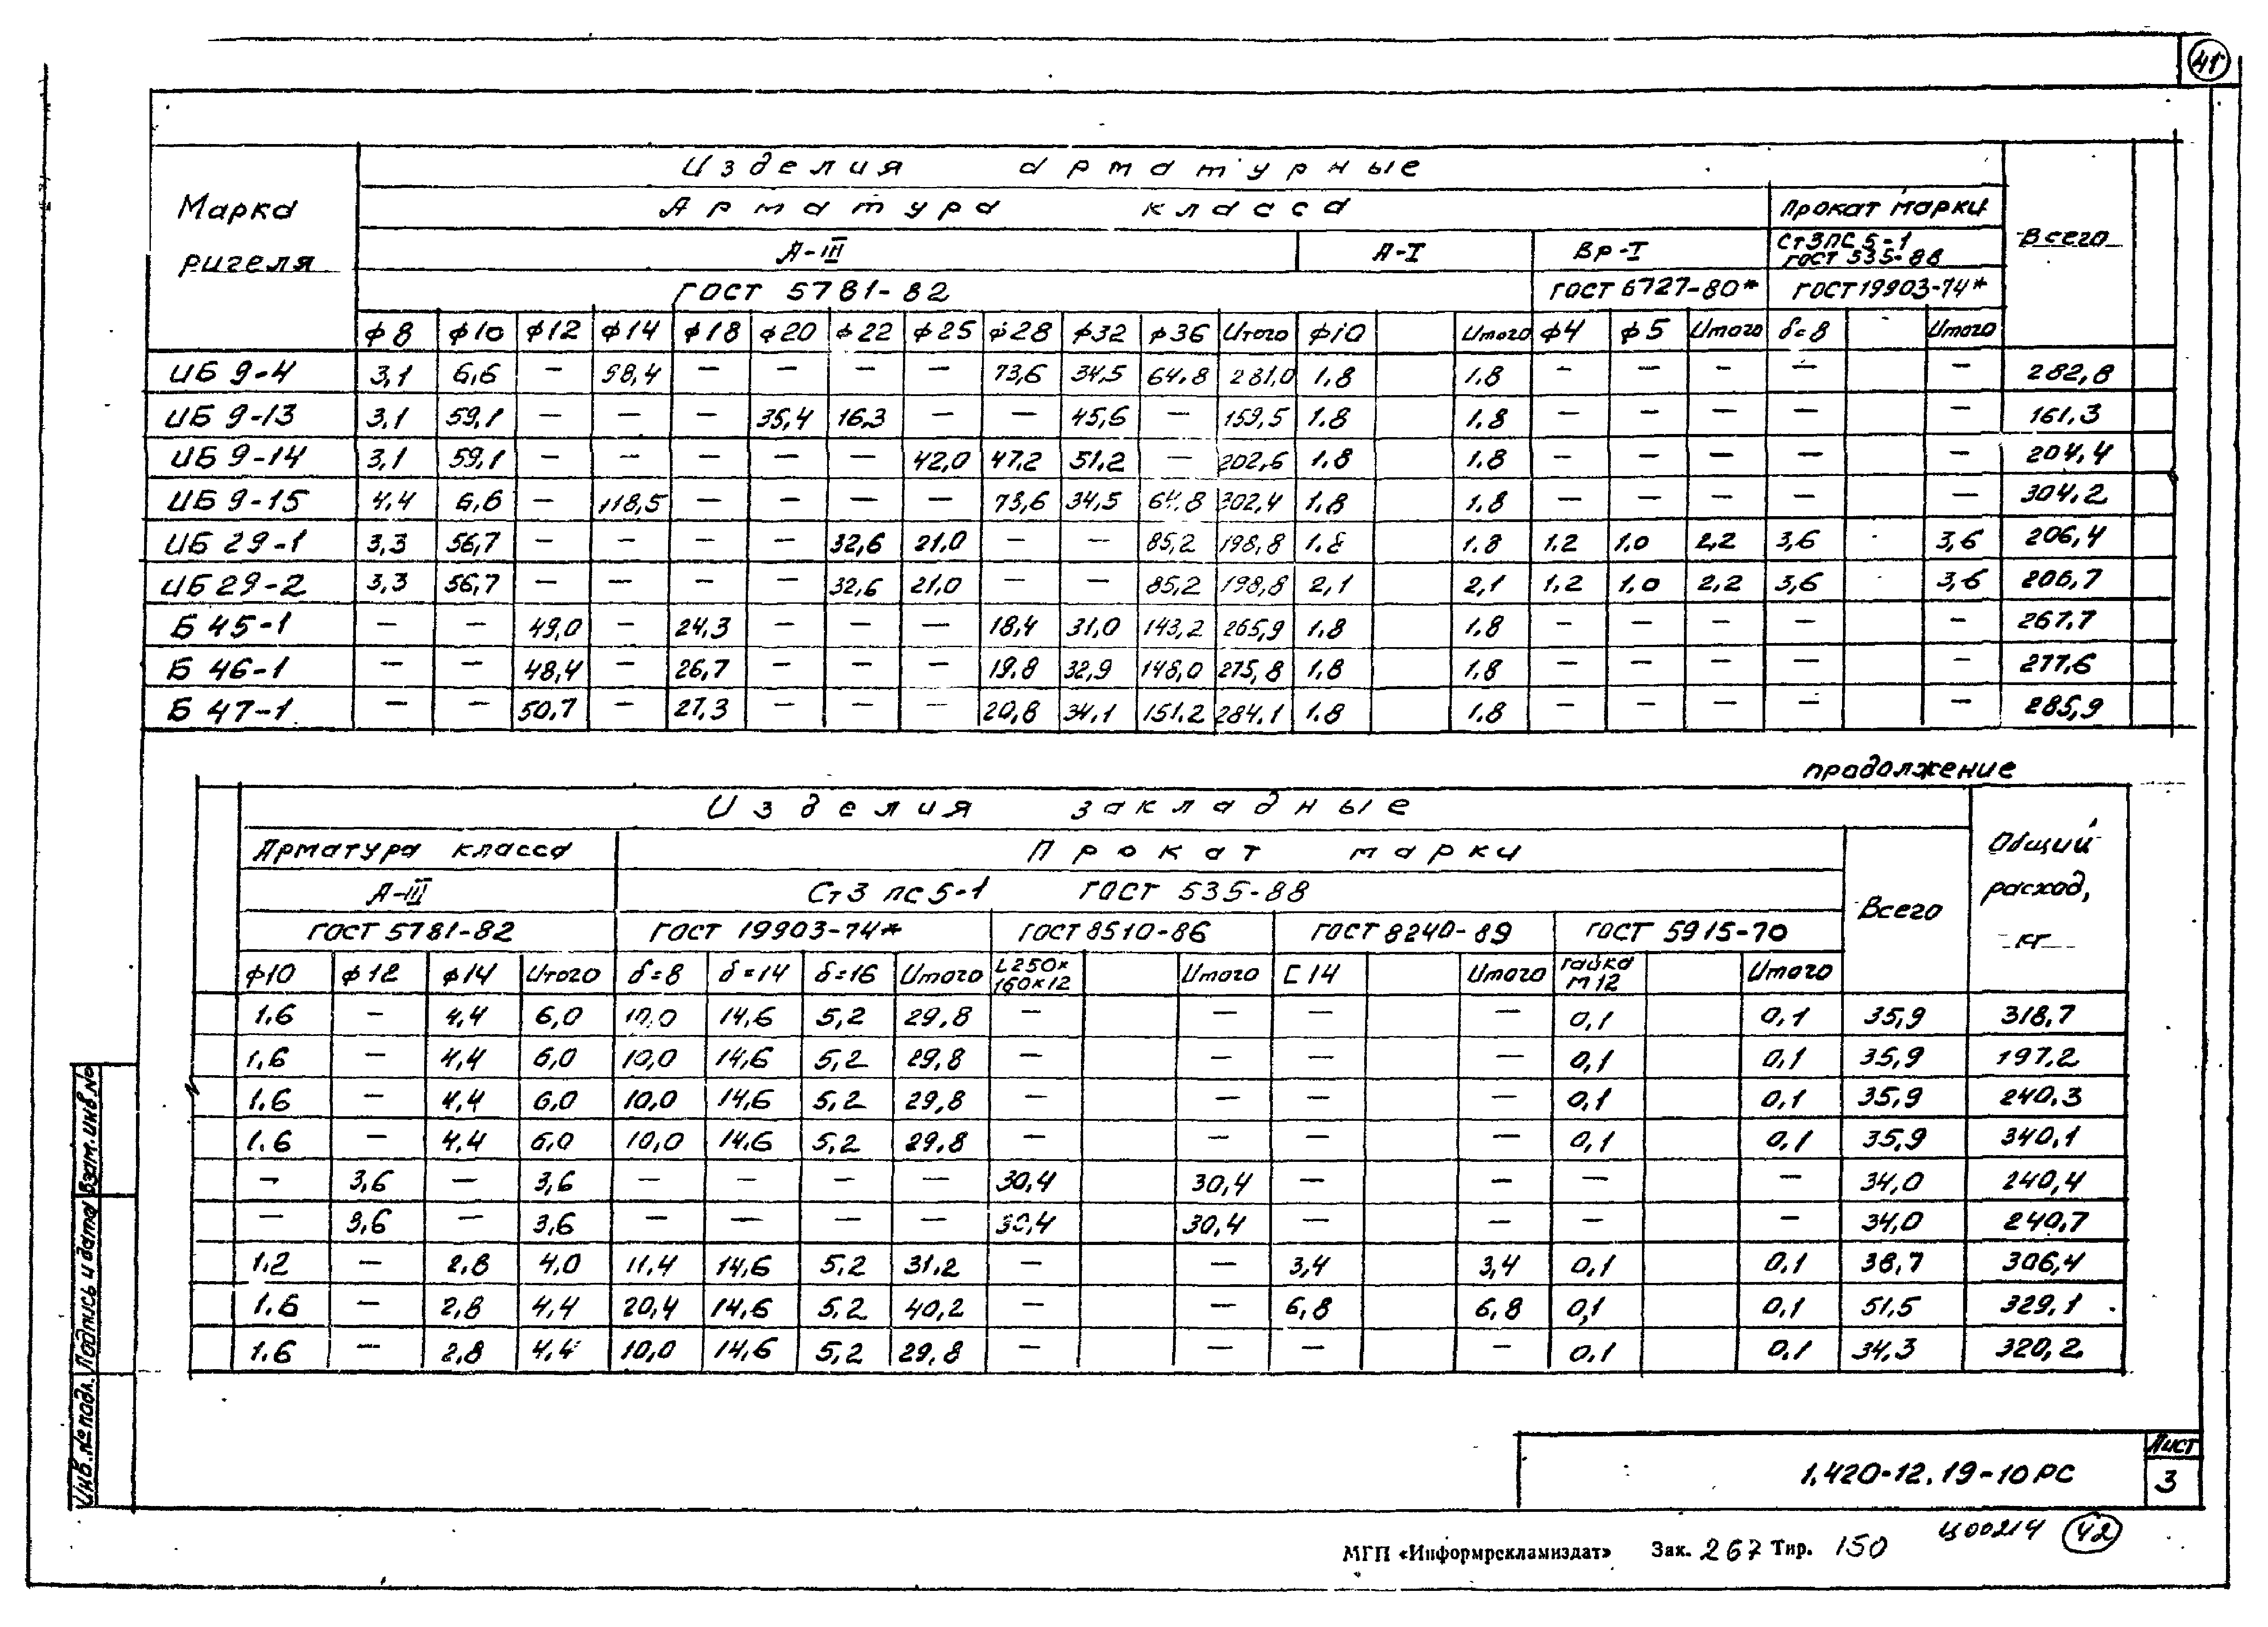 41
Изделия арматурные
Марка ригеля
Арматура класса
Прокат марки
Всего
А-III
А-I
Вр-I
Ст3пс5-1
ГОСТ 535-88
ГОСТ 5781-82
ГОСТ 6727-80*
ГОСТ 19903-74*
ф8 ф10 ф12 ф14 ф18 ф20 ф22 ф25 ф28 ф32 ф36 Итого ф10 Итого ф4 ф5 Итого δ=8 Итого
ИБ 9-4 3,1 6,6 — 98,4 — — — — 73,6 34,5 64,8 281,0 1.8 1.8 — — — — — 282,8
ИБ 9-13 3,1 59,1 — — — 35,4 16,3 — — 45,6 — 159,5 1.8 1.8 — — — — — 161,3
ИБ 9-14 3,1 59,1 — — — — — 42,0 47,2 51,2 — 202,6 1.8 1.8 — — — — — 204,4
ИБ 9-15 4,4 6,6 — 118,5 — — — — 73,6 34,5 64,8 302,4 1.8 1.8 — — — — — 304,2
ИБ 29-1 3,3 56,7 — — — — 32,6 21,0 — — 85,2 198,8 1.8 1.8 1.2 1.0 2,2 3,6 3,6 206,4
ИБ 29-2 3,3 56,7 — — — — 32,6 21,0 — — 85,2 198,8 2,1 2,1 1,2 1.0 2,2 3,6 3,6 206,7
Б 45-1 — — 49,0 — 24,3 — — — 18,4 31,0 143,2 265,9 1.8 1.8 — — — — — 267,7
Б 46-1 — — 48,4 — 26,7 — — — 19.8 32,9 148,0 275,8 1.8 1.8 — — — — — 277,6
Б 47-1 — — 50,7 — 27,3 — — — 20,8 34,1 151,2 284,1 1.8 1.8 — — — — — 285,9
продолжение
Изделия закладные
Общий расход, кг
Арматура класса
Прокат марки
Всего
А-III
Ст3пс5-1 ГОСТ 535-88
ГОСТ 5781-82
ГОСТ 19903-74*
ГОСТ 8510-86
ГОСТ 8240-89
ГОСТ 5915-70
ф10 ф12 ф14 Итого δ=8 δ=14 δ=16 Итого L250х160х12 Итого С14 Итого гайка М12 Итого
1.6 — 4,4 6,0 10,0 14,6 5,2 29,8 — — — — 0,1 0,1 35,9 318,7
1,6 — 4,4 6,0 10,0 14,6 5,2 29,8 — — — — 0,1 0,1 35,9 197,2
1.6 — 4,4 6,0 10,0 14,6 5,2 29,8 — — — — 0,1 0,1 35,9 240,3
1.6 — 4,4 6,0 10,0 14,6 5,2 29,8 — — — — 0,1 0,1 35,9 340,1
— 3,6 — 3,6 — — — — 30,4 30,4 — — — — 34,0 240,4
— 3,6 — 3,6 — — — — 30,4 30,4 — — — — 34,0 240,7
1.2 — 2,8 4,0 11,4 14,6 5,2 31,2 — — 3,4 3,4 0,1 0,1 38,7 306,4
1.6 — 2,8 4,4 20,4 14,6 5,2 40,2 — — 6,8 6,8 0,1 0,1 51,5 329,1
1.6 — 2,8 4,4 10,0 14,6 5,2 29,8 — — — — 0,1 0,1 34,3 320,2
Инв.№ подл. Подпись и дата Взам.инв.№
1.420-12.19-10РС
Лист
3
Ц00214 42
МГП «Информрекламиздат» Зак. 267 Тир. 150